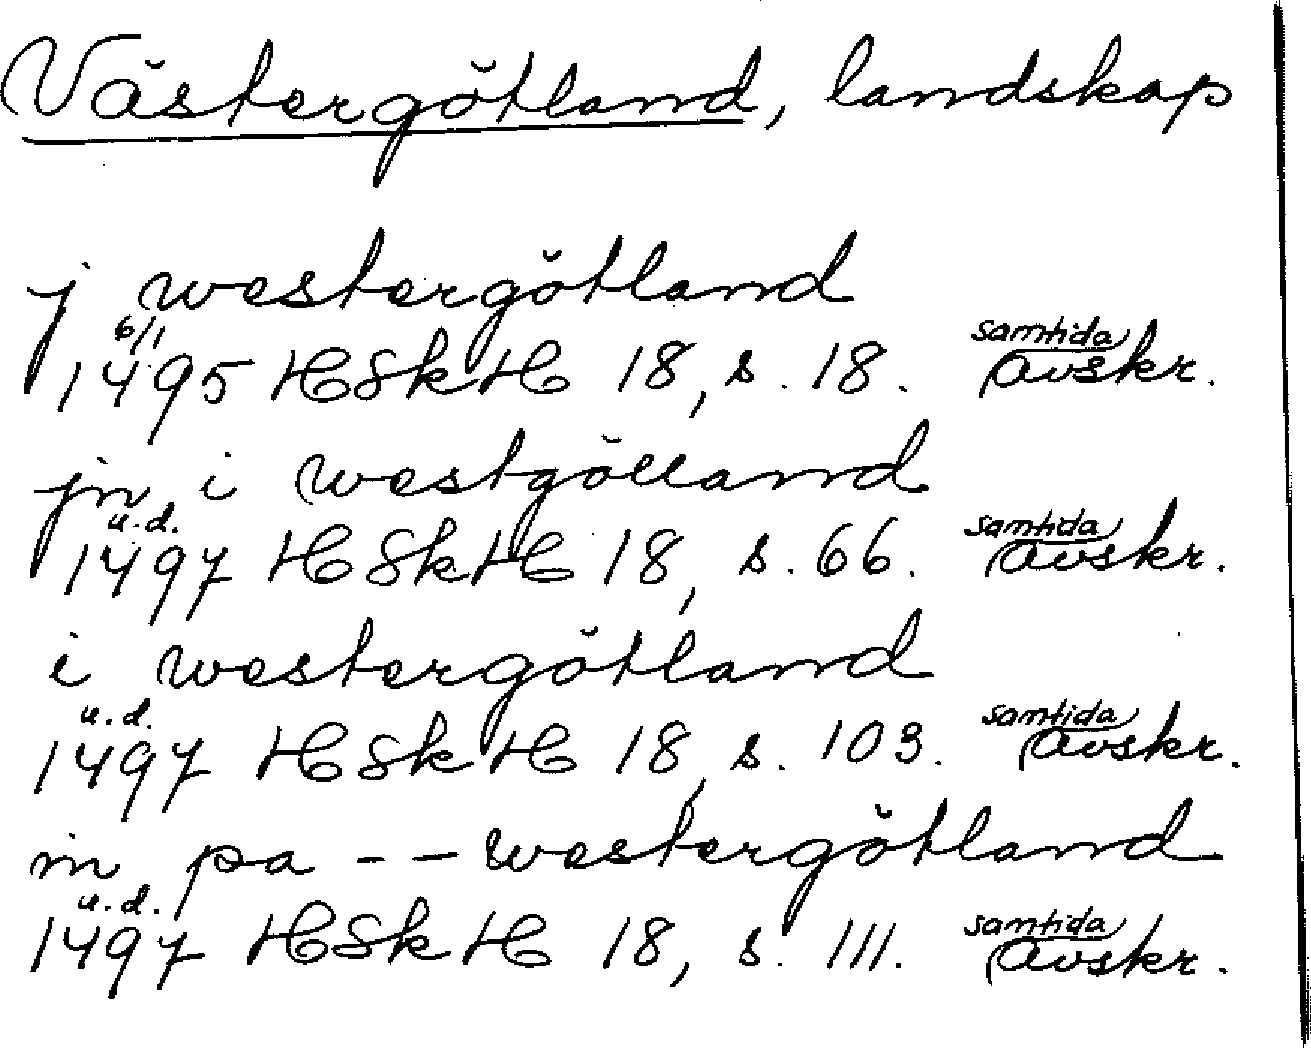 Västergötland, landskap
j westergötland
6/1 1495 HSkH 18, s. 18. samtida avskr.
jn i westgötland
u.d. 1497 HSkH 18, s. 66. samtida avskr.
i westergötland
u.d. 1497 HSkH 18, s. 103. samtida avskr.
in pa -- westergötland
u.d. 1497 HSkH 18, s. 111. samtida avskr.